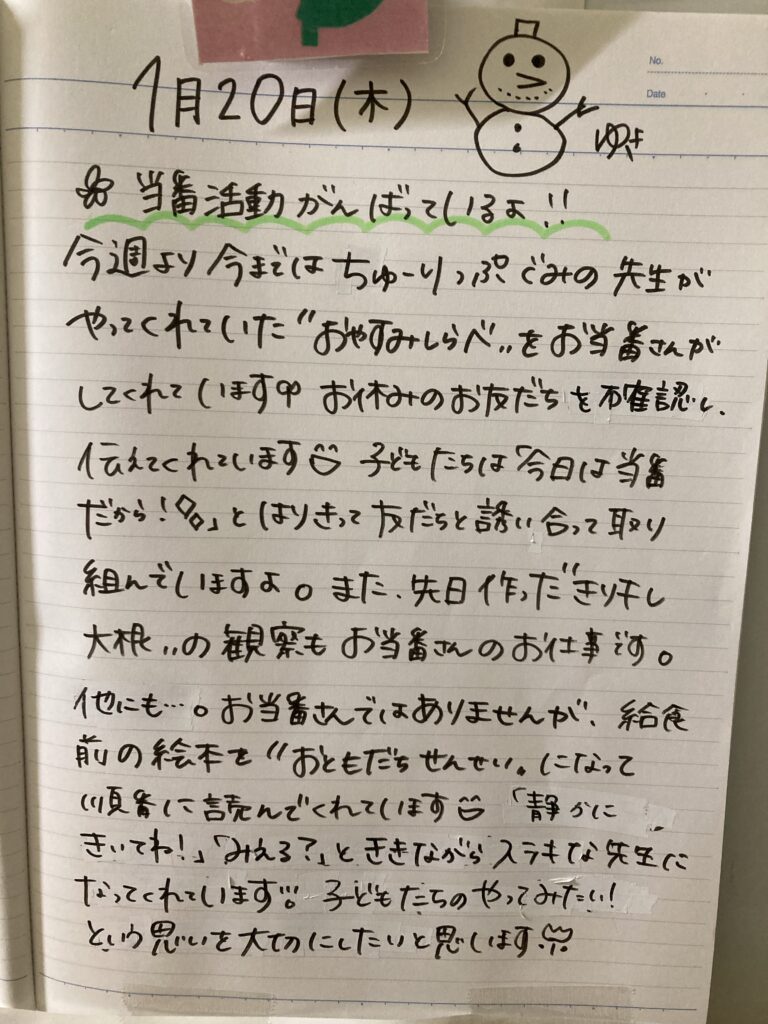 1月20日(木)
No.
Date
当番活動がんばっているよ!!
今週より今まではちゅーりっぷぐみの先生が
やってくれていた〝おやすみしらべ〟をお当番さんが
してくれています お休みのお友だちを確認し、
伝えてくれています 子どもたちは「今日は当番
だから!」とはりきって友だちと誘い合って取り
組んでいますよ。また、先日作った〝きり干し
大根〟の観察もお当番さんのお仕事です。
他にも…。お当番さんではありませんが、給食
前の絵本を〝おともだちせんせい〟になって
順番に読んでくれています 「静かに
きいてね!」「みえる?」とききながらステキな先生に
なってくれています 子どもたちのやってみたい!
という思いを大切にしたいと思います